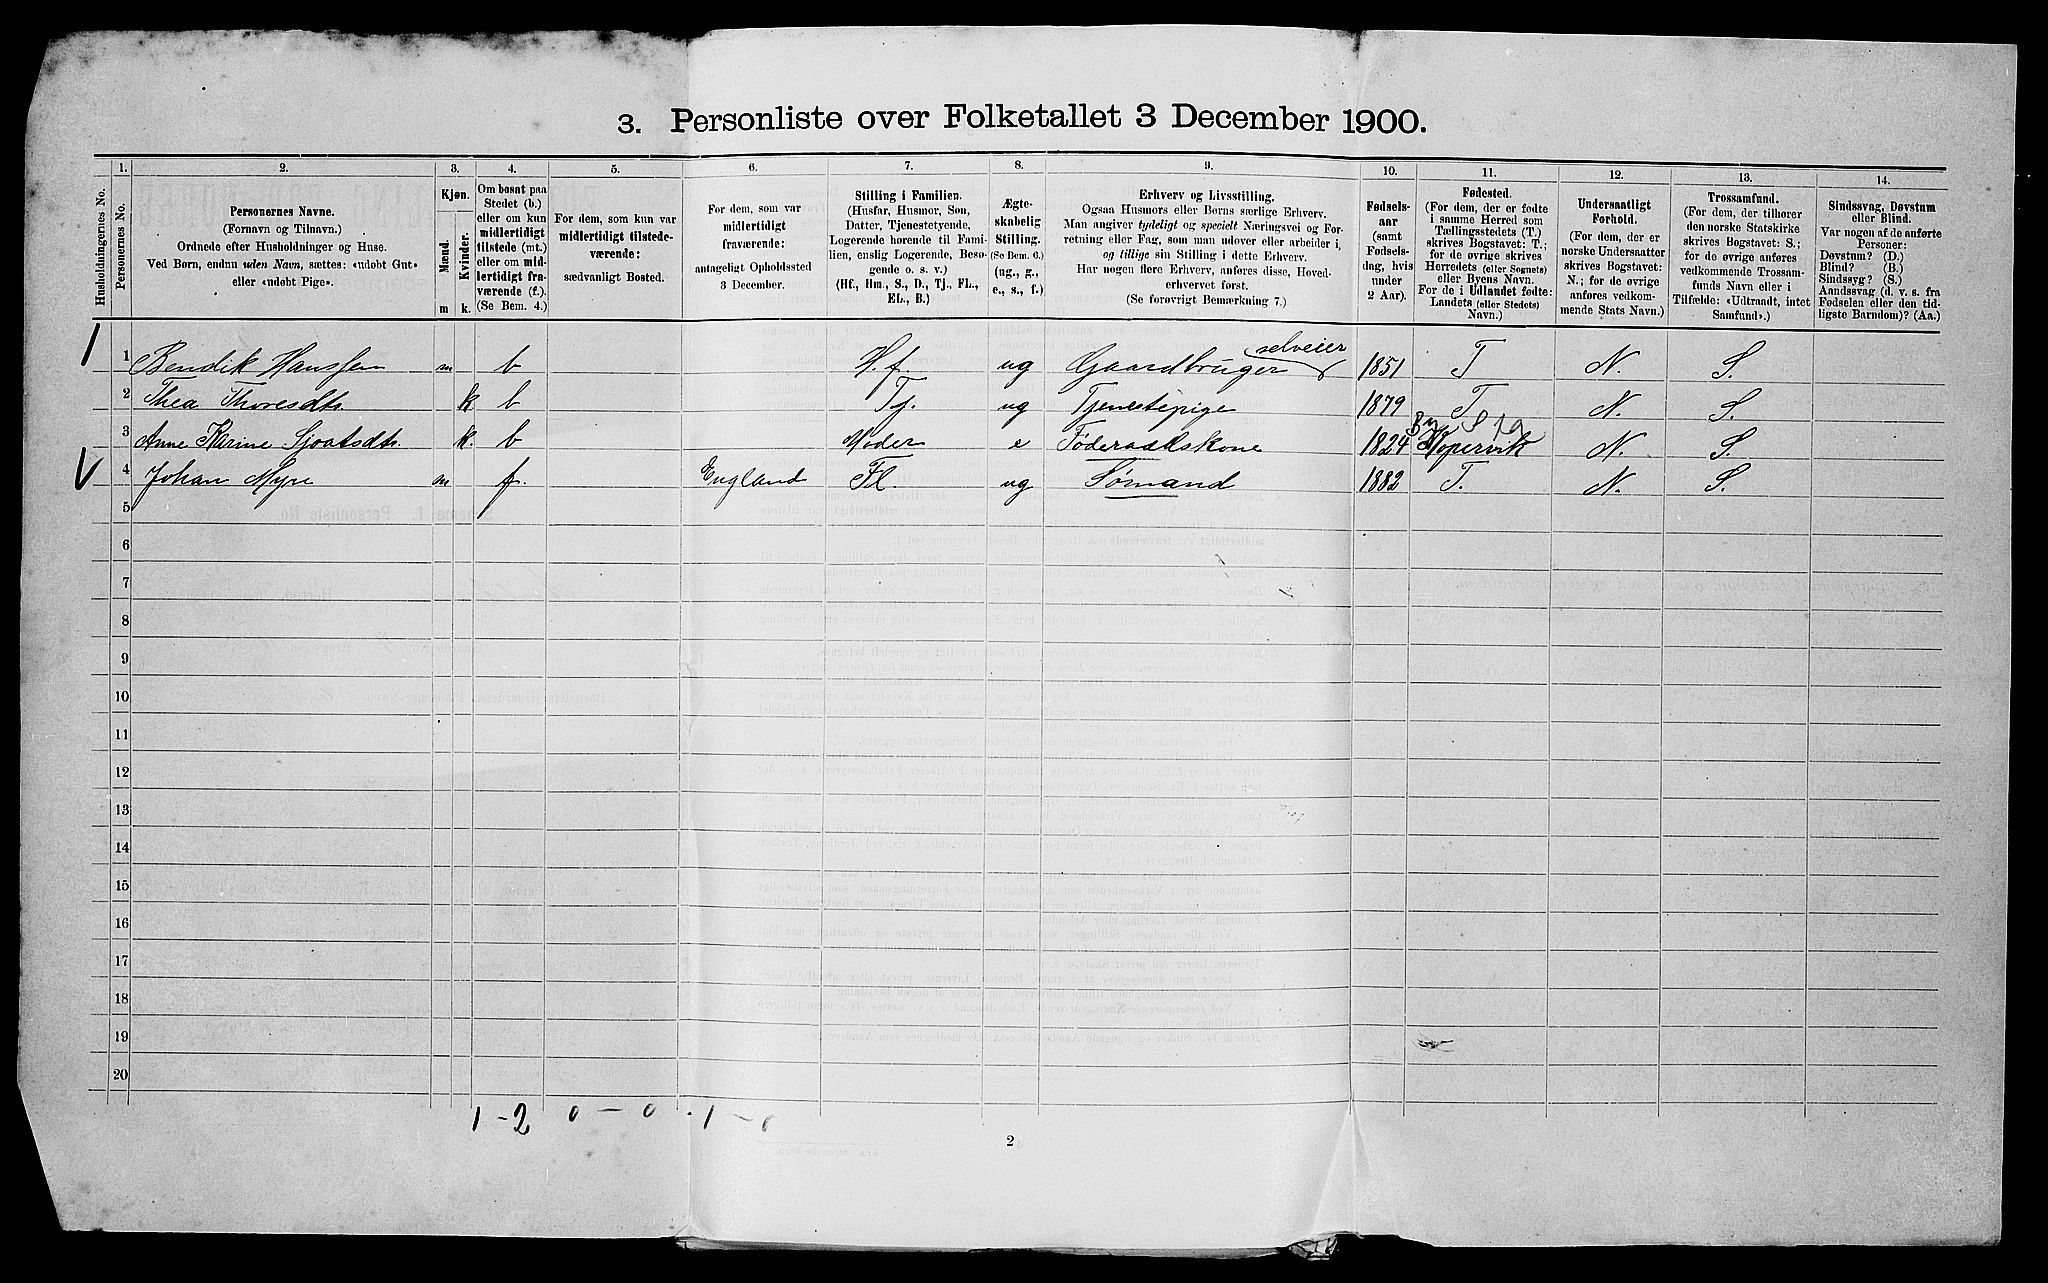 3. Personliste over Folketallet 3 December 1900.
Husholdningernes No.
1.
Personernes No.
2.
Personernes Navne.
(Fornavn og Tilnavn.)
Ordnede efter Husholdninger og Huse.
Ved Børn, endnu uden Navn, sættes: «udøbt Gut»
eller «udøbt Pige».
3.
Kjøn.
Mænd.
Kvinder.
m
k.
4.
Om bosat paa
Stedet (b.)
eller om kun
midlertidigt
tilstede (mt.)
eller om mid-
lertidigt fra-
værende (f.).
(Se Bem. 4.)
5.
For dem, som kun var
midlertidigt tilstede-
værende:
sædvanligt Bosted.
6.
For dem, som var
midlertidigt
fraværende:
antageligt Opholdssted
3 December.
7.
Stilling i Familien.
(Husfar, Husmor, Søn,
Datter, Tjenestetyende,
Logerende hørende til Fami-
lien, enslig Logerende, Besø-
gende o. s. v.)
(Hf., Hm., S., D., Tj., Fl.,
El., B.)
8.
Ægte-
skabelig
Stilling.
(Se Bem. 6.)
(ug., g.,
e., s., f.)
9.
Erhverv og Livsstilling.
Ogsaa Husmors eller Børns særlige Erhverv.
Man angiver tydeligt og specielt Næringsvei og For-
retning eller Fag, som man udover eller arbeider i,
og tillige sin Stilling i dette Erhverv.
Har nogen flere Erhverv, anføres disse, Hoved-
erhvervet først.
(Se forøvrigt Bemærkning 7.)
10.
Fødsels-
aar
(samt
Fødsels-
dag, hvis
under
2 Aar).
11.
Fødested.
(For dem, der er fødte
i samme Herred som
Tællingsstedets (T.)
skrives Bogstavet: T.;
for de øvrige skrives
Herredets (eller Sognets)
eller Byens Navn.
For de i Udlandet fødte:
Landets (eller Stedets)
Navn.)
12.
Undersaatligt
Forhold.
(For dem, der er
norske Undersaatter
skrives Bogstavet:
N.; for de øvrige
anføres vedkom-
mende Stats Navn.)
13.
Trossamfund.
(For dem, der tilhører
den norske Statskirke
skrives Bogstavet: S.;
for de øvrige anføres
vedkommende Trossam-
funds Navn eller i
Tilfælde: «Udtraadt, intet
Samfund».)
14.
Sindssvag, Døvstum
eller Blind.
Var nogen af de anførte
Personer:
Døvstum? (D.)
Blind? (B.)
Sindssyg? (S.)
Aandssvag (d. v. s. fra
Fødselen eller den tid-
ligste Barndom)? (Aa.)
1 1 Bendik Hansen m b H.f. ug Gaardbruger selveier 1851 T N. S.
2 Thea Thoresdtr. k b Tj. ug Tjenestepige 1879 T. N. S.
3 Anne Karine Sjoatsdtr. k. b Moder e Føderaadskone 1824 Kopervik N. S.
4 Johan Myre m f. England Fl. ug Sømand 1882 T. N. S.
5
6
7
8
9
10
11
12
13
14
15
16
17
18
19
20
1 - 2 0 - 0 . 1 - 0
2